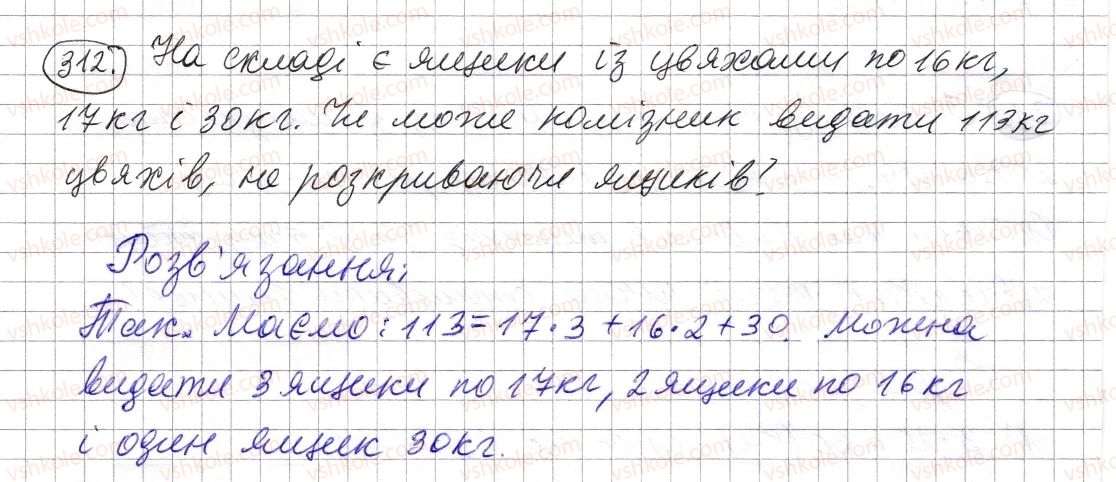 312. На складі є ящики із цвяхами по 16 кг,
17 кг і 30 кг. Чи може комізник видати 113 кг
цвяхів, не розкриваючи ящиків?
Розв'язання:
Так. Маємо: 113 = 17·3 + 16·2 + 30. Можна
видати 3 ящики по 17 кг, 2 ящики по 16 кг
і один ящик 30 кг.